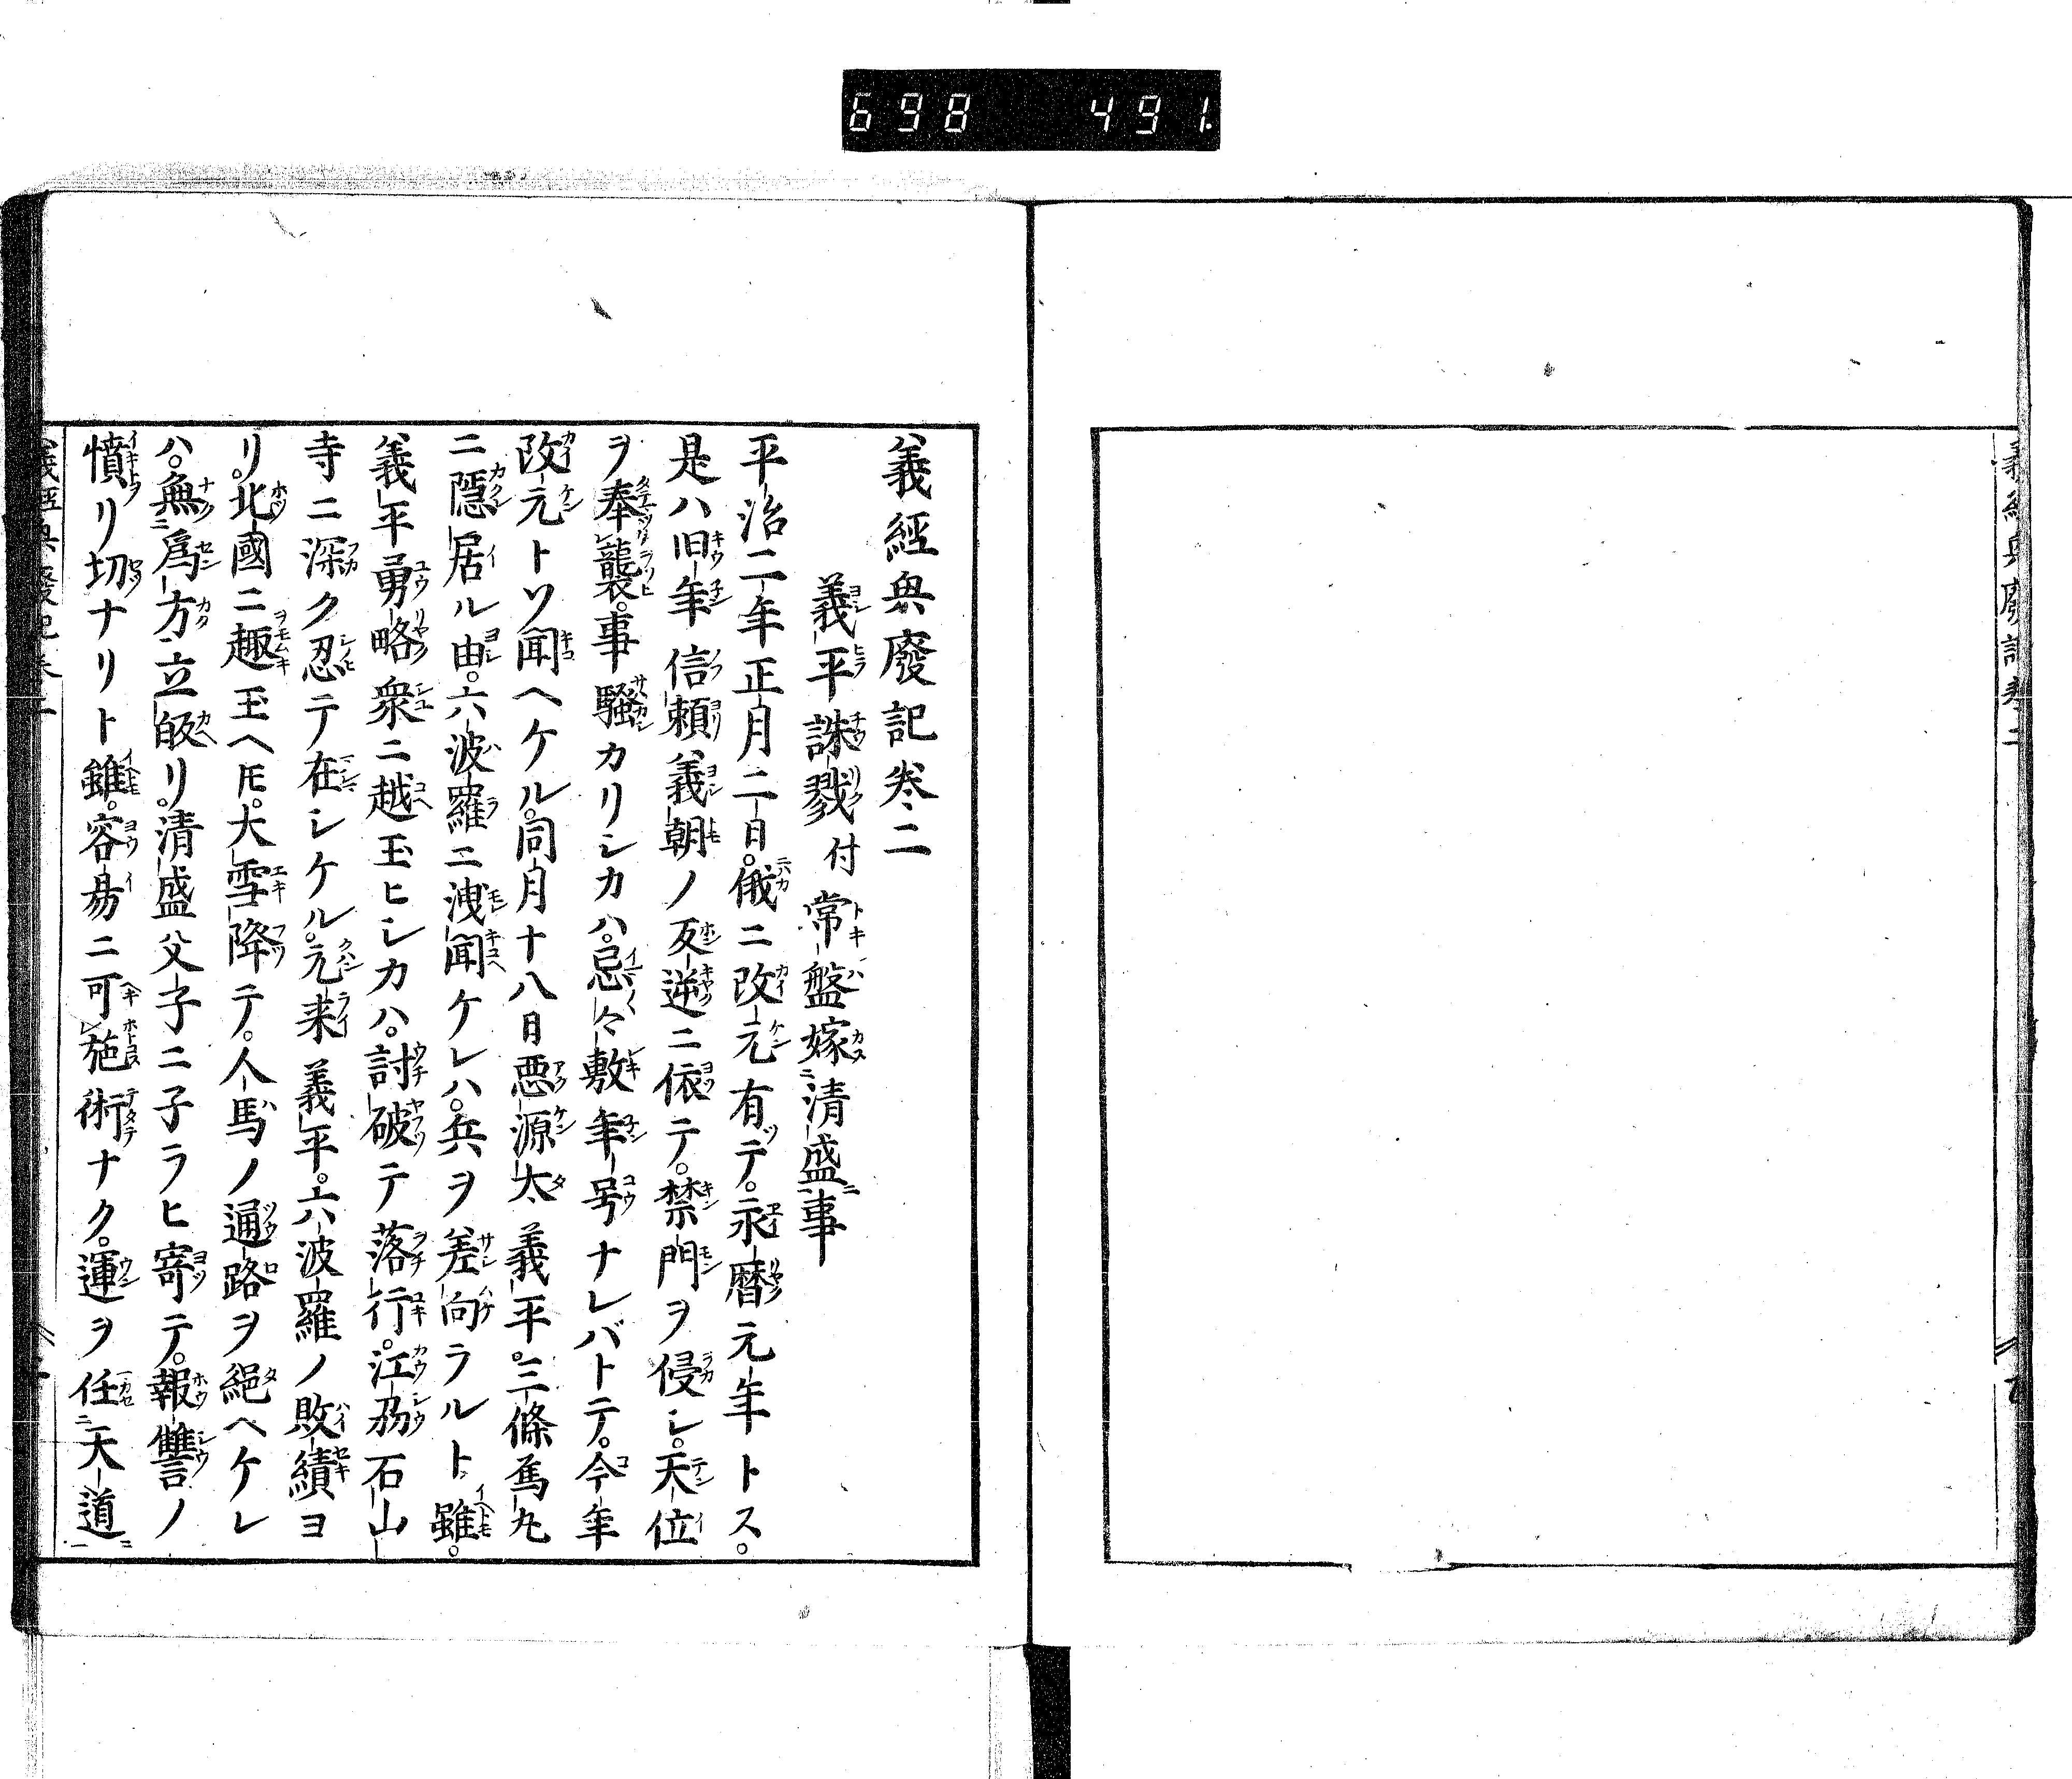 698 491
義經興廢記巻二
義平誅戮付常盤嫁清盛事
平治二年正月二日。俄ニ改元有テ。永暦元年トス。
是ハ旧年信頼義朝ノ反逆ニ依テ。禁門ヲ侵シ。天位
ヲ奉襲。事騒カリシカハ。忌々敷年号ナレバトテ。今年
改元トソ聞ヘケル。同月十八日悪源太義平。三條烏丸
ニ隠居ル由。六波羅ニ洩聞ケレハ。兵ヲ差向ラルト雖。
義平勇略衆ニ越玉ヒシカハ。討破テ落行。江刕石山
寺ニ深ク忍テ在シケル。元来義平。六波羅ノ敗績ヨ
リ。北國ニ趣玉ヘ𪜈。大雪降テ。人馬ノ通路ヲ絕ヘケレ
ハ。無為方立皈リ。清盛父子ニ子ラヒ寄テ。報讐ノ
憤リ切ナリト雖。容易ニ可施術ナク。運ヲ任天道